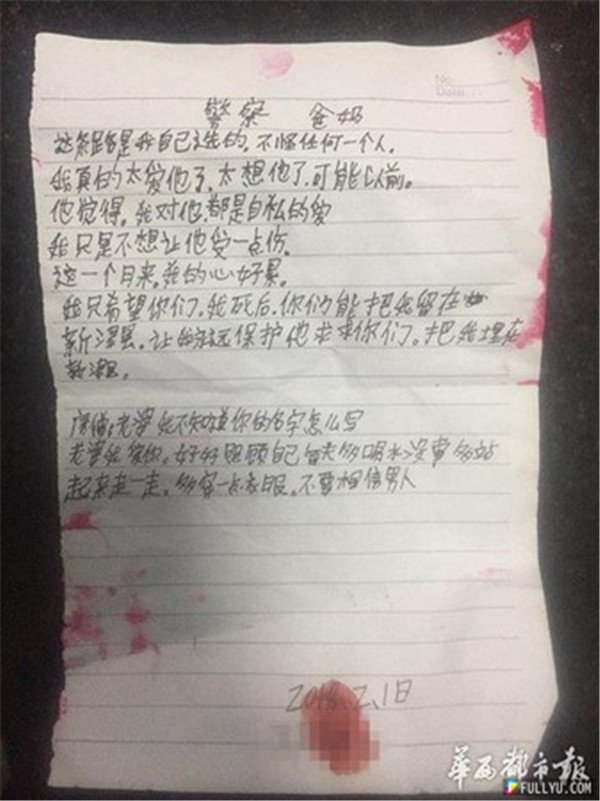 No.
Date
警察 爸妈
这条路是我自己选的,不怪任何一个人,
我真的太爱他了,太想他了,可能以前。
他觉得,我对他都是自私的爱
我只是不想让他受一点伤
这一个月来,我的心好累。
我只希望你们,我死后,你们能把我留在
新津县,让我永远保护他求求你们。把我埋在
新津。
老婆我不知道你的名字怎么写
老婆我爱你,好好照顾自己每天多喝水没事多站
起来走一走,多穿一点衣服,不要相信男人
2016.2.1日
华西都市报
FULLYU.COM